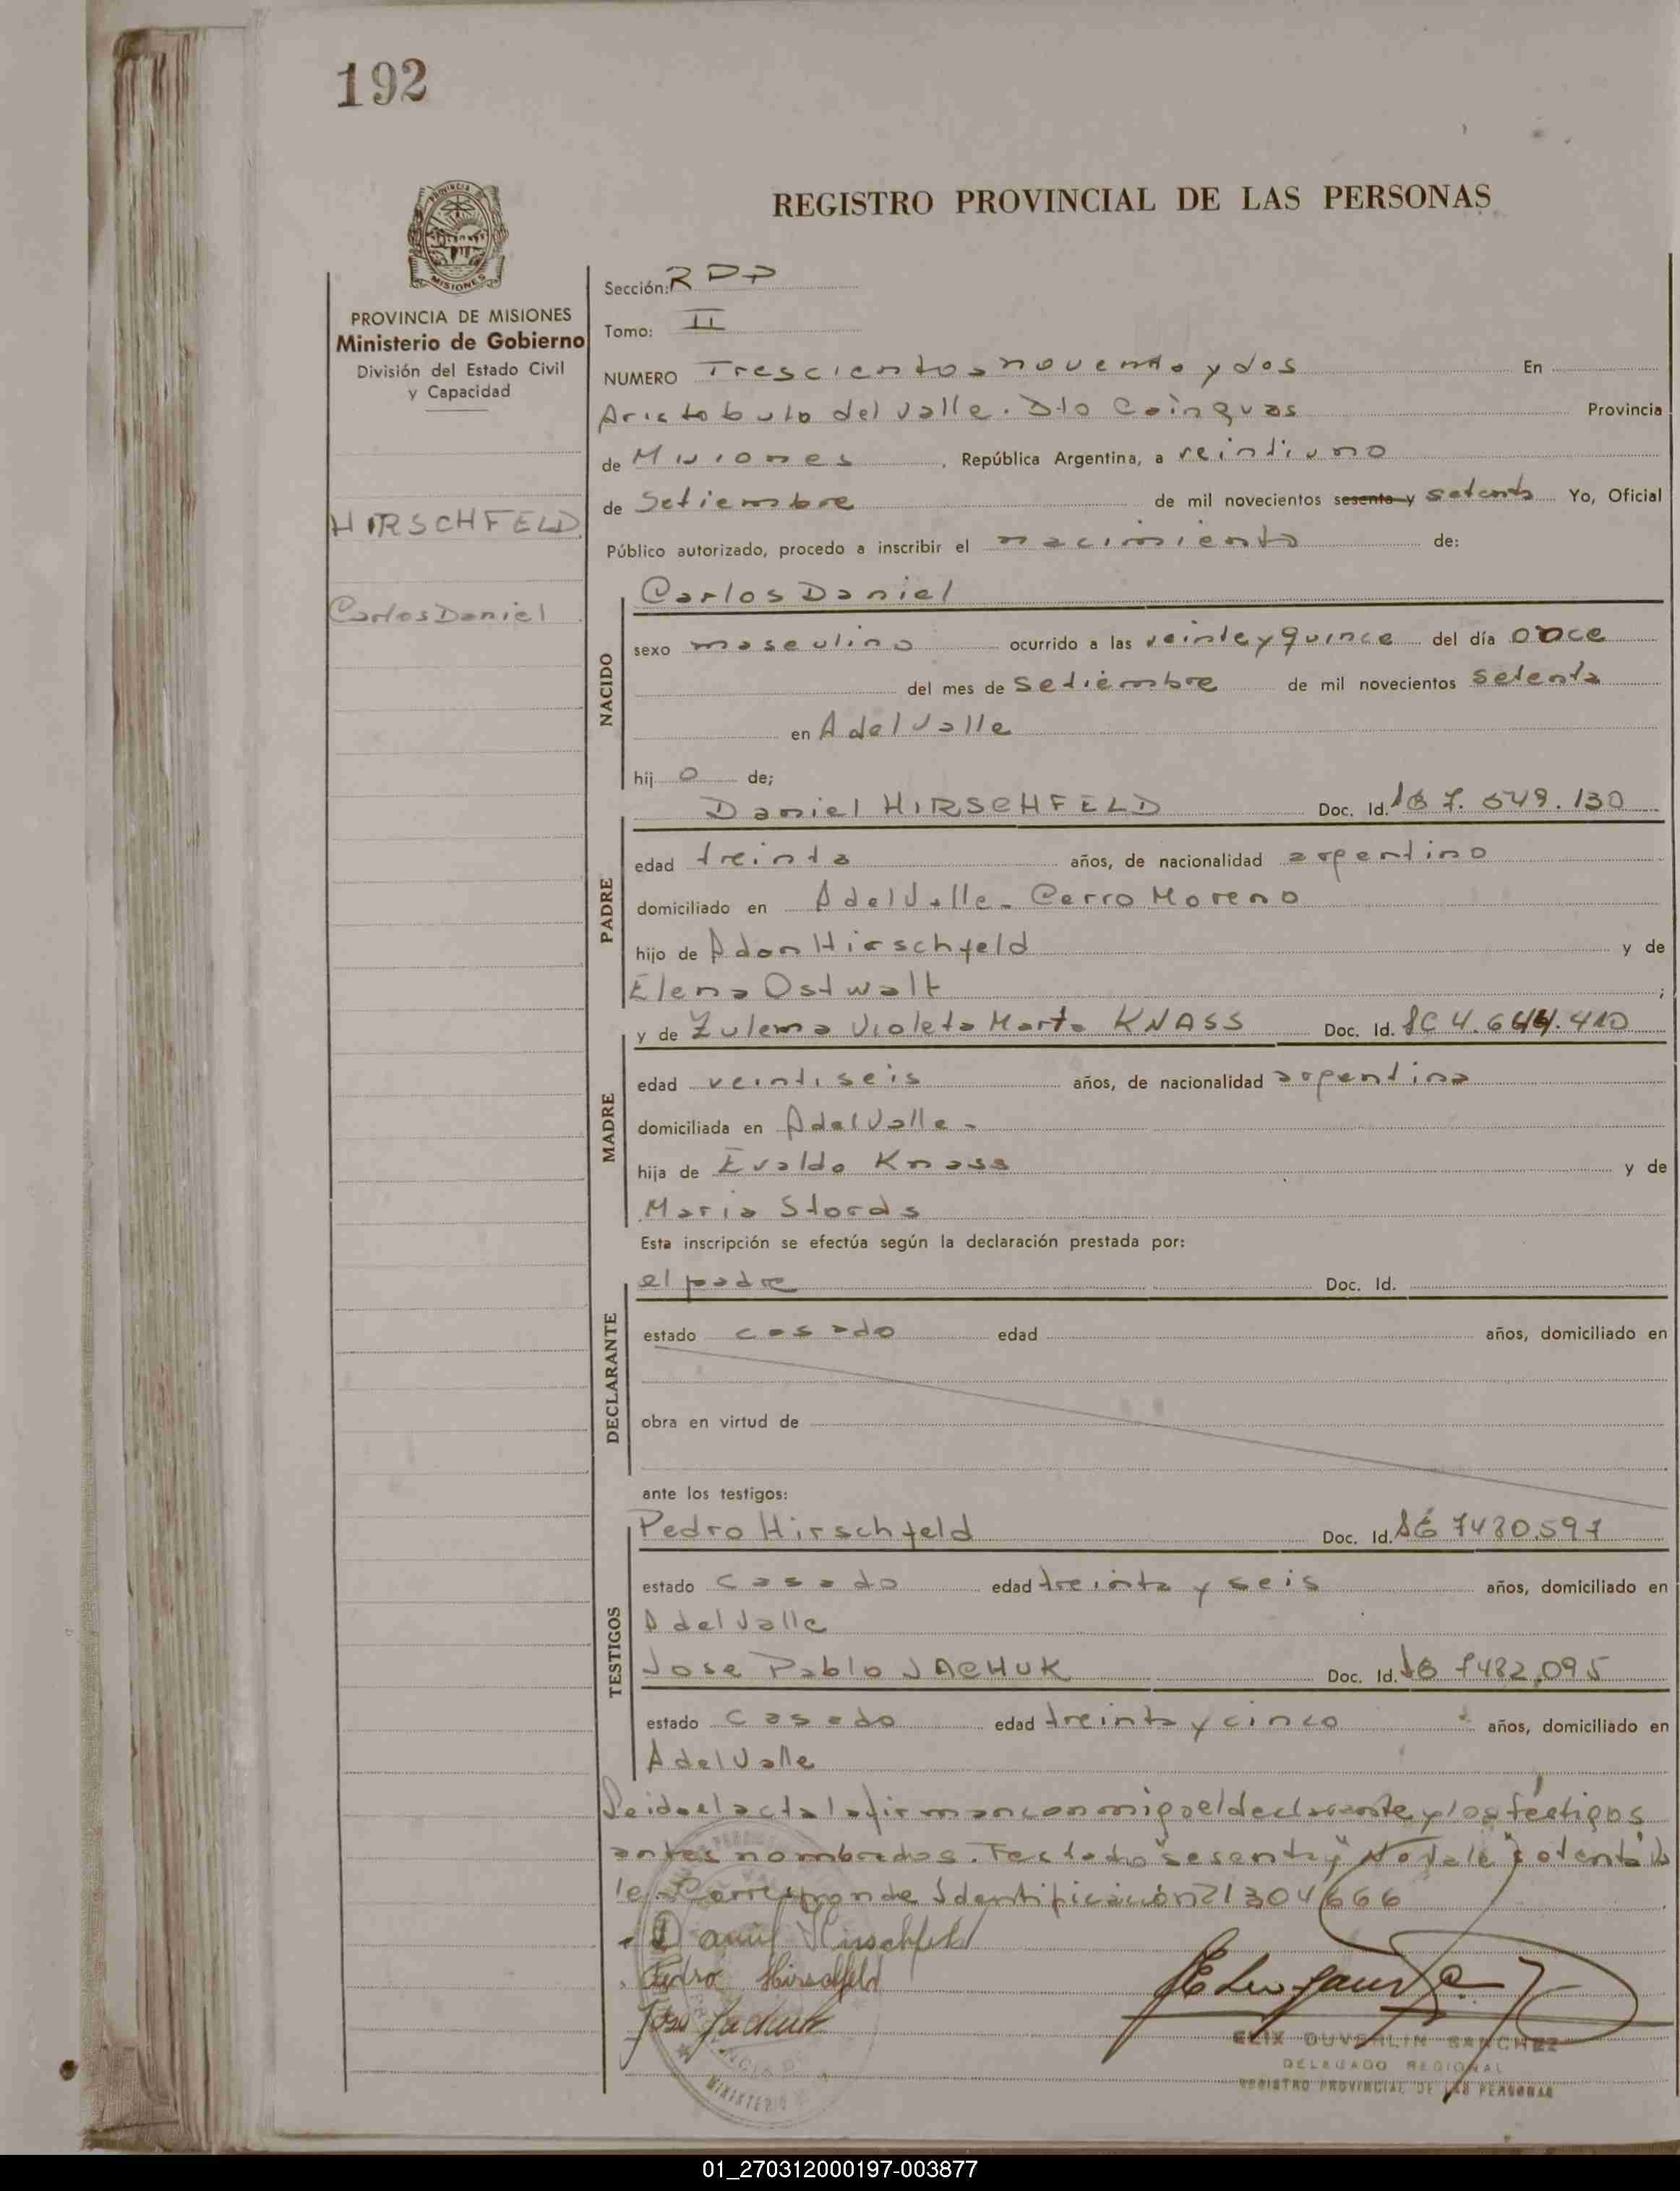 192
PROVINCIA
MISIONES
REGISTRO PROVINCIAL DE LAS PERSONAS
PROVINCIA DE MISIONES
Ministerio de Gobierno
División del Estado Civil
y Capacidad
HIRSCHFELD
Carlos Daniel
Sección: RPP
Tomo: II
NUMERO Trescientos noventa y dos En
Aristobulo del Valle. Dto Cainguas Provincia
de Misiones, República Argentina, a veintiuno
de Setiembre de mil novecientos sesenta y setenta Yo, Oficial
Público autorizado, procedo a inscribir el nacimiento de:
NACIDO
Carlos Daniel
sexo masculino ocurrido a las veinte y quince del día once
del mes de Setiembre de mil novecientos Setenta
en A del Valle
hijo de;
PADRE
Daniel HIRSCHFELD Doc. Id. 7.549.130
edad treinta años, de nacionalidad argentino
domiciliado en A del Valle - Cerro Moreno
hijo de Adan Hirschfeld y de
Elena Ostwalt ;
MADRE
y de Zulema Violeta Marta KNASS Doc. Id. 4.644.410
edad veintiseis años, de nacionalidad argentina
domiciliada en A del Valle -
hija de Evaldo Knass y de
Maria Stords
Esta inscripción se efectúa según la declaración prestada por:
DECLARANTE
el padre Doc. Id.
estado casado edad años, domiciliado en
obra en virtud de
ante los testigos:
TESTIGOS
Pedro Hirschfeld Doc. Id. 7480.597
estado casado edad treinta y seis años, domiciliado en
A del Valle
Jose Pablo JACHUK Doc. Id. 7482,095
estado casado edad treinta y cinco años, domiciliado en
A del Valle
Leida el acta la firman conmigo el declarante y los testigos
antes nombrados. Testado "sesenta y" No vale
le - Corresponde Identificación 21304666
Daniel Hirschfeld
Pedro Hirschfeld
Jose Jachuk
ELIX DUVERLIN SANCHEZ
DELEGADO REGIONAL
REGISTRO PROVINCIAL DE LAS PERSONAS
MINISTERIO
01_270312000197-003877